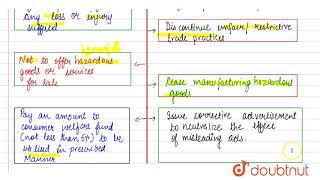 any loss or injury
suffered
Discontinue unfair/restrictive
trade practices
Not to offer hazardous
goods or services
for sale
Cease manufacturing hazardous
goods
Pay an amount to
consumer welfare fund
(not less than 5%) to be
utilised in prescribed
Manner
Issue corrective advertisement
to neutralize the effect
of misleading ads.
doubtnut